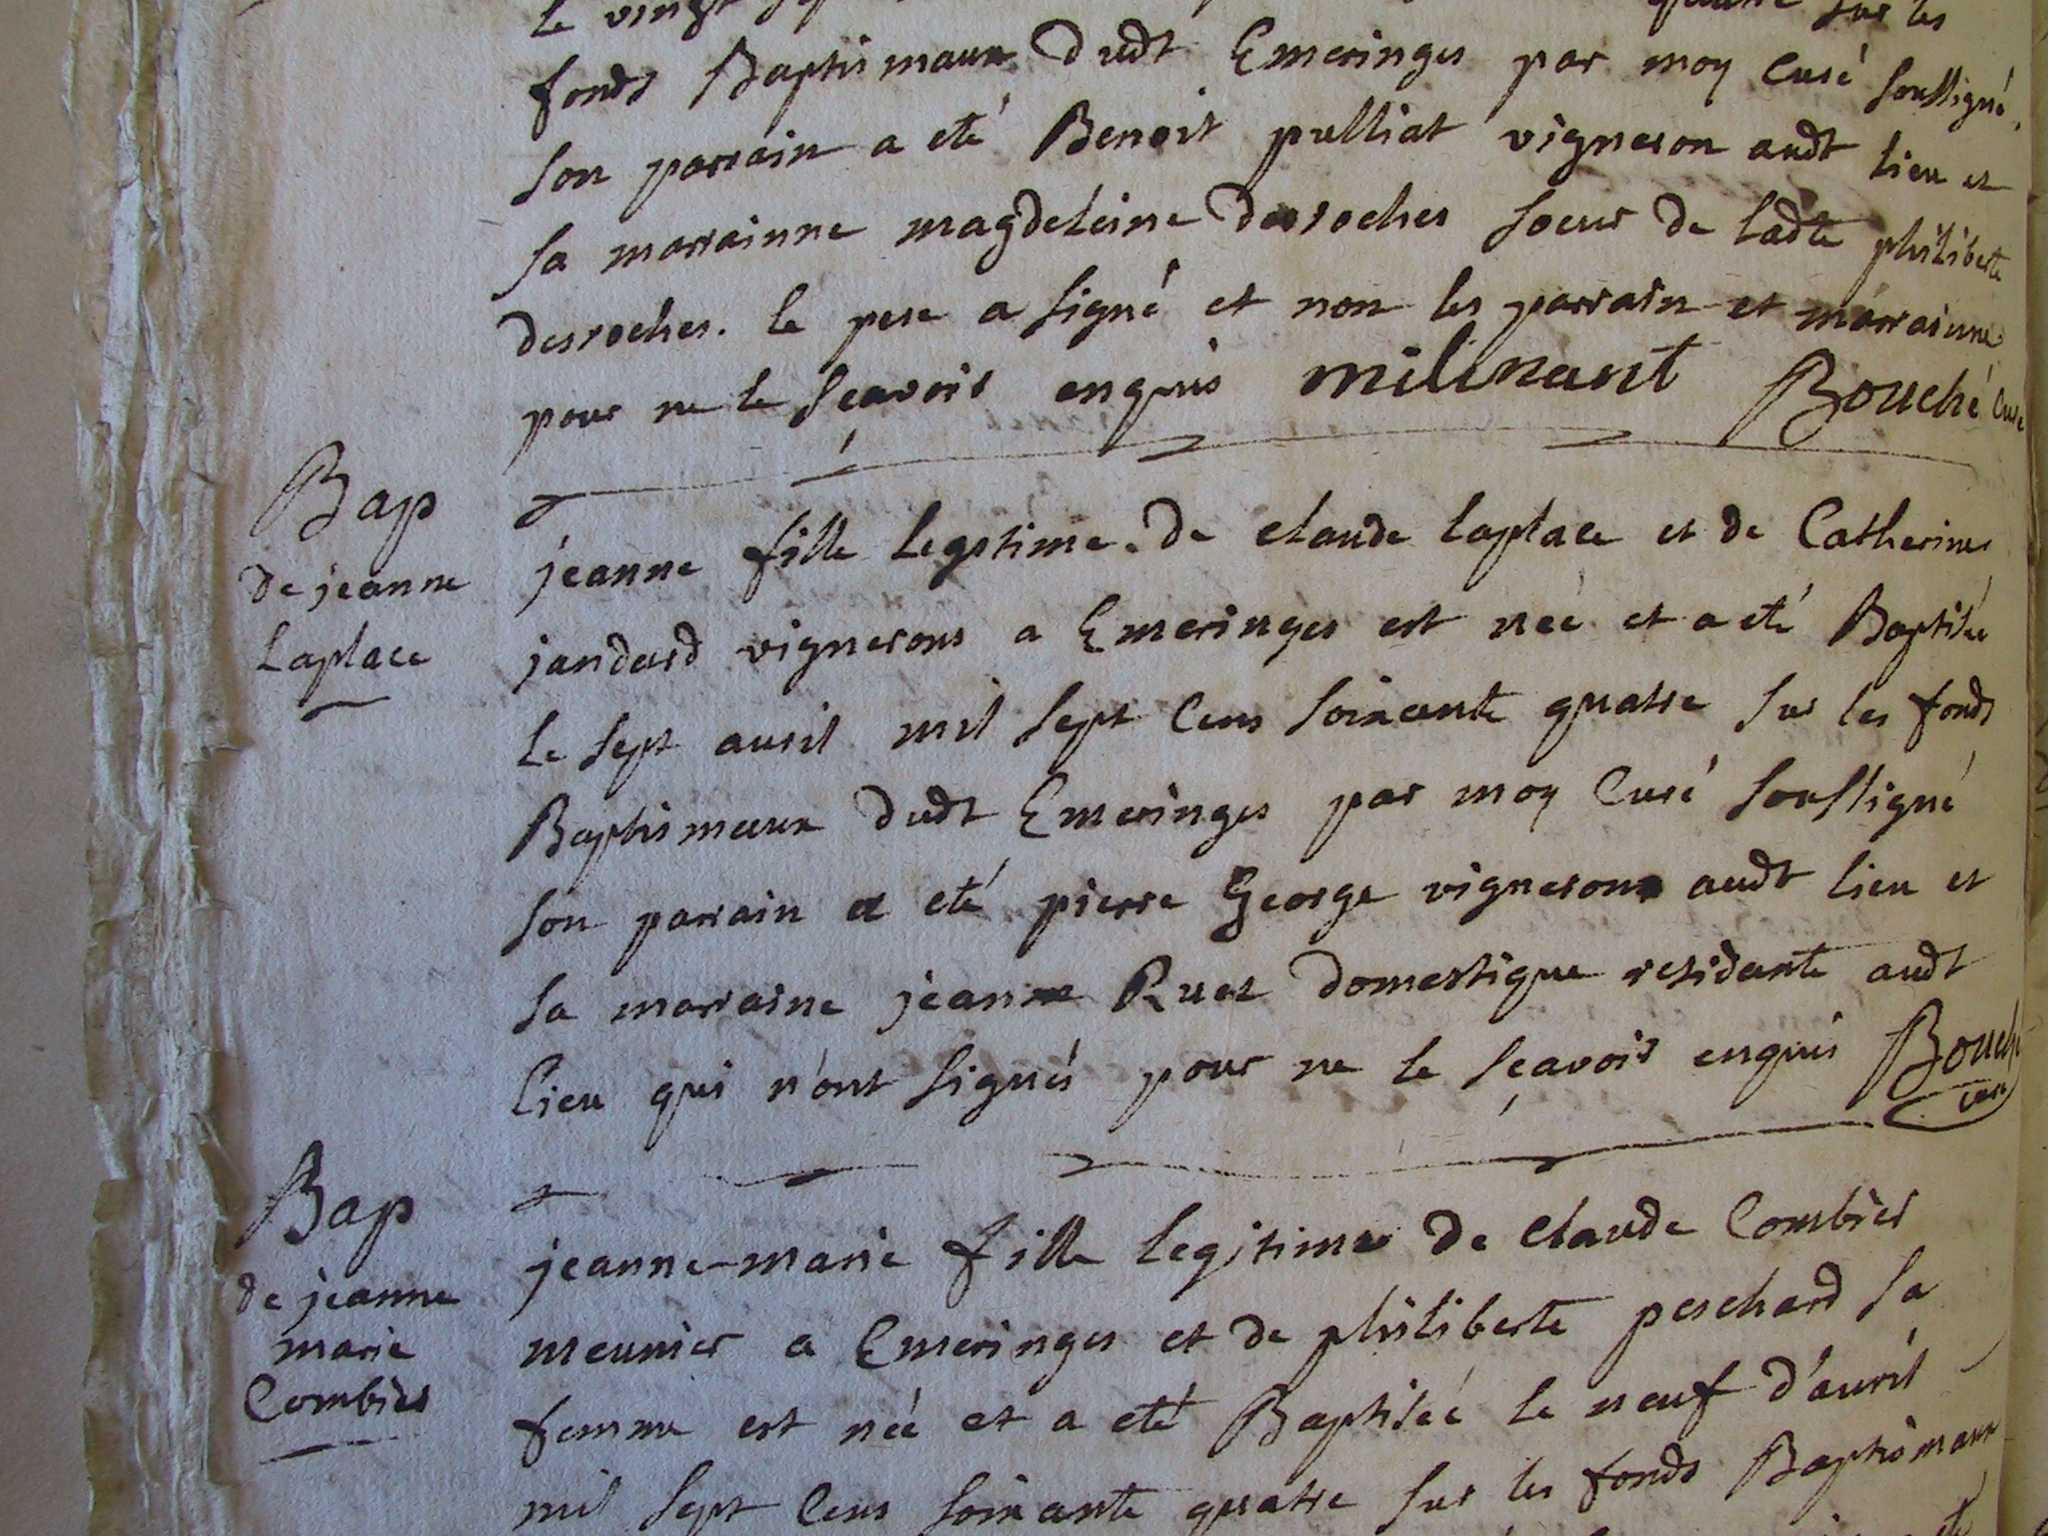 le vingt sept quatre sur les
fonds Baptismaux dudt Emeringes par moy Curé soussigné,
son parrain a eté Benoit pulliat vigneron audt lieu et
sa marrainne magdeleine desroches soeur de ladte philiberte
desroches. le pere a signé et non les parrain et marrainne
pour ne le sçavoir enquis milinant Bouché Curé
Bap
de jeanne
Laplace
jeanne fille legitime de claude laplace et de Catherine
jandard vignerons a Emeringes est néé et a eté Baptisée
le sept auril mil sept Cens soixante quatre sur les fonds
Baptismaux dudt Emeringes par moy Curé soussigné
son parrain a eté pierre George vigneron audt lieu et
sa marraine jeanne Ruet domestique residante audt
lieu qui n'ont signés pour ne le sçavoir enquis Bouché
Curé
Bap
de jeanne
marie
Combier
jeanne-marie fille legitime de claude Combier
meunier a Emeringes et de philiberte peschard sa
femme est néé et a eté Baptiséé le neuf d'auril
mil sept Cens soixante quatre sur les fonds Baptismaux